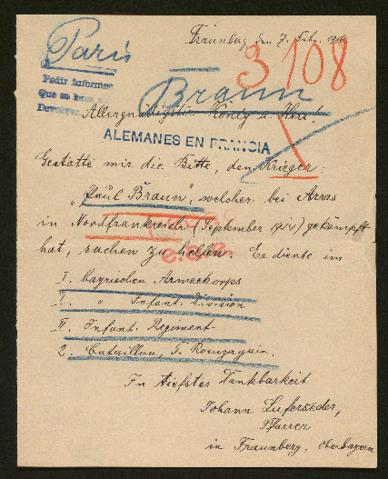 Fraunberg den 7. Febr. 191
Paris
3108
Pedir informes
Que se
Devolver
Braun
Allergnädigster König u. Herr!
ALEMANES EN FRANCIA
Gestatte mir die Bitte, den Krieger
"Paul Braun", welcher bei Arras
in Nordfrankreich (September 1914) gekämpft
hat, suchen zu helfen. Er diente im
I. bayrischen Armeekorps
I. " Infant. Division
II. Infant. Regiment
2. Bataillon, 5. Kompagnie.
In tiefster Dankbarkeit
Johann
Pfarrer
in Fraunberg, Oberbayern